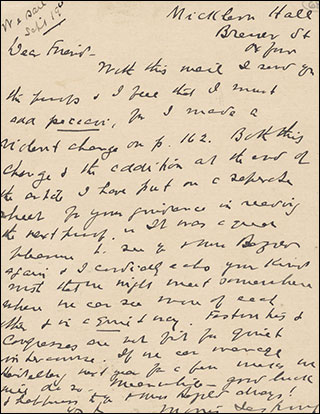 Sept 19
Micklem Hall
Brewer St
Oxford
Dear Friend -
With this mail I send you
the proofs & I feel that I must
add peccavi, for I made a
change on p. 162. Both this
change & the addition at the end of
the article I have put on a separate
sheet for your guidance in reading
the next proof. It was a great
pleasure to see you & Mrs
again & I cordially echo your kind
wish that we might meet somewhere
where we can see more of each
other & in a quiet way. Festivities &
Congresses are not fit for quiet
intercourse. If we can manage
next year for a few weeks we
will do so. Meanwhile - good luck
& happiness to you & Mrs always!
Yours